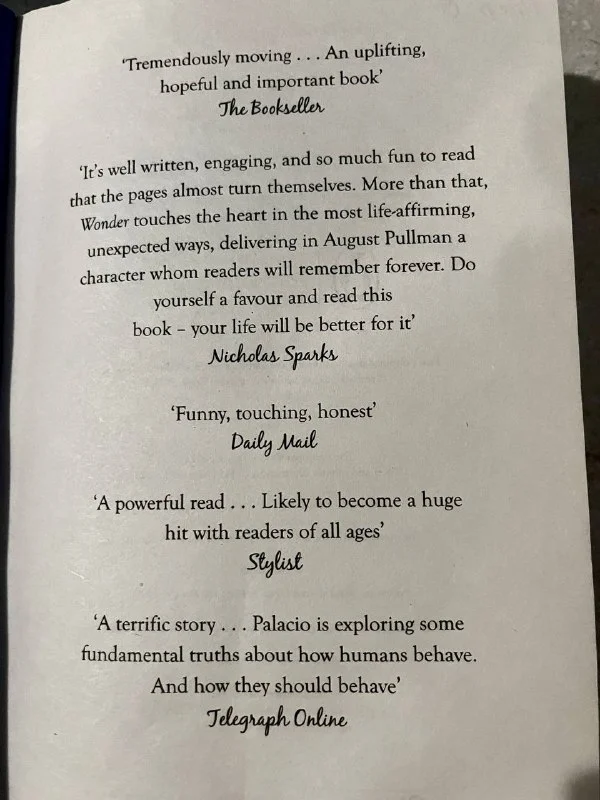 ‘Tremendously moving . . . An uplifting,
hopeful and important book’
The Bookseller
‘It’s well written, engaging, and so much fun to read
that the pages almost turn themselves. More than that,
Wonder touches the heart in the most life-affirming,
unexpected ways, delivering in August Pullman a
character whom readers will remember forever. Do
yourself a favour and read this
book – your life will be better for it’
Nicholas Sparks
‘Funny, touching, honest’
Daily Mail
‘A powerful read . . . Likely to become a huge
hit with readers of all ages’
Stylist
‘A terrific story . . . Palacio is exploring some
fundamental truths about how humans behave.
And how they should behave’
Telegraph Online